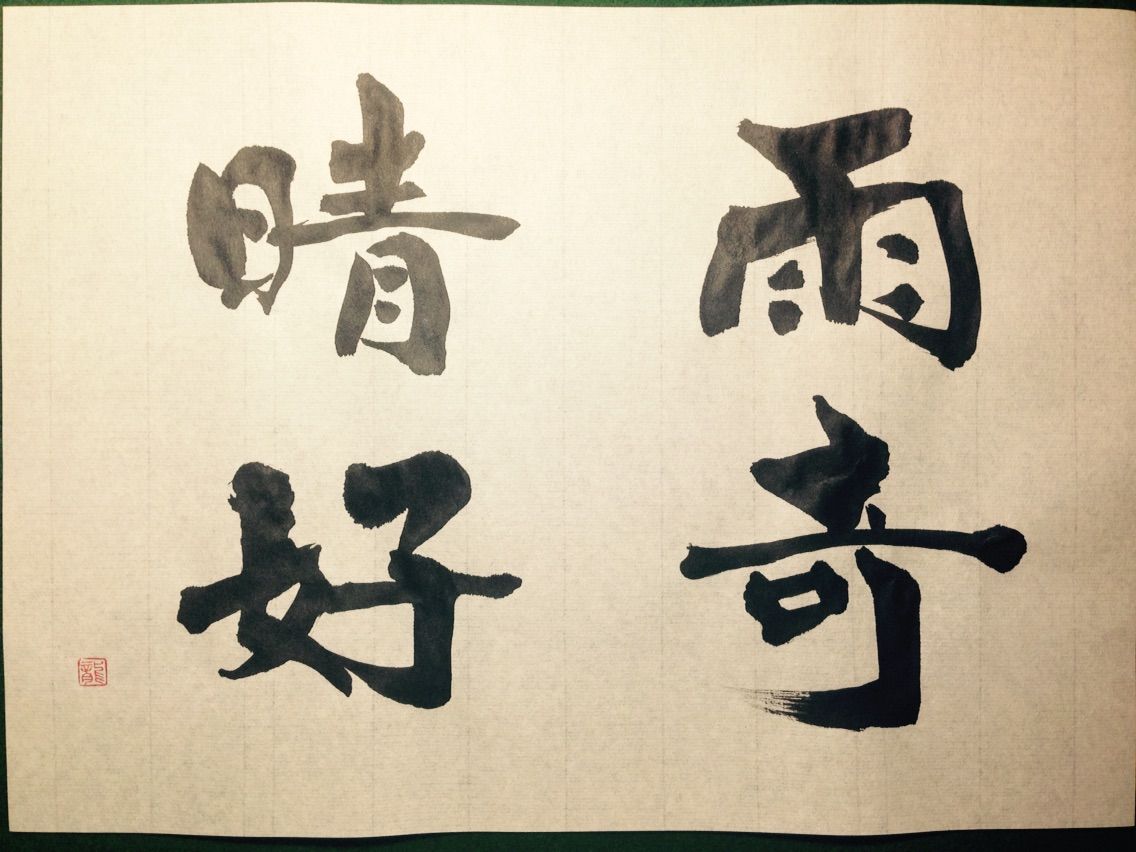 雨奇
晴好
龍